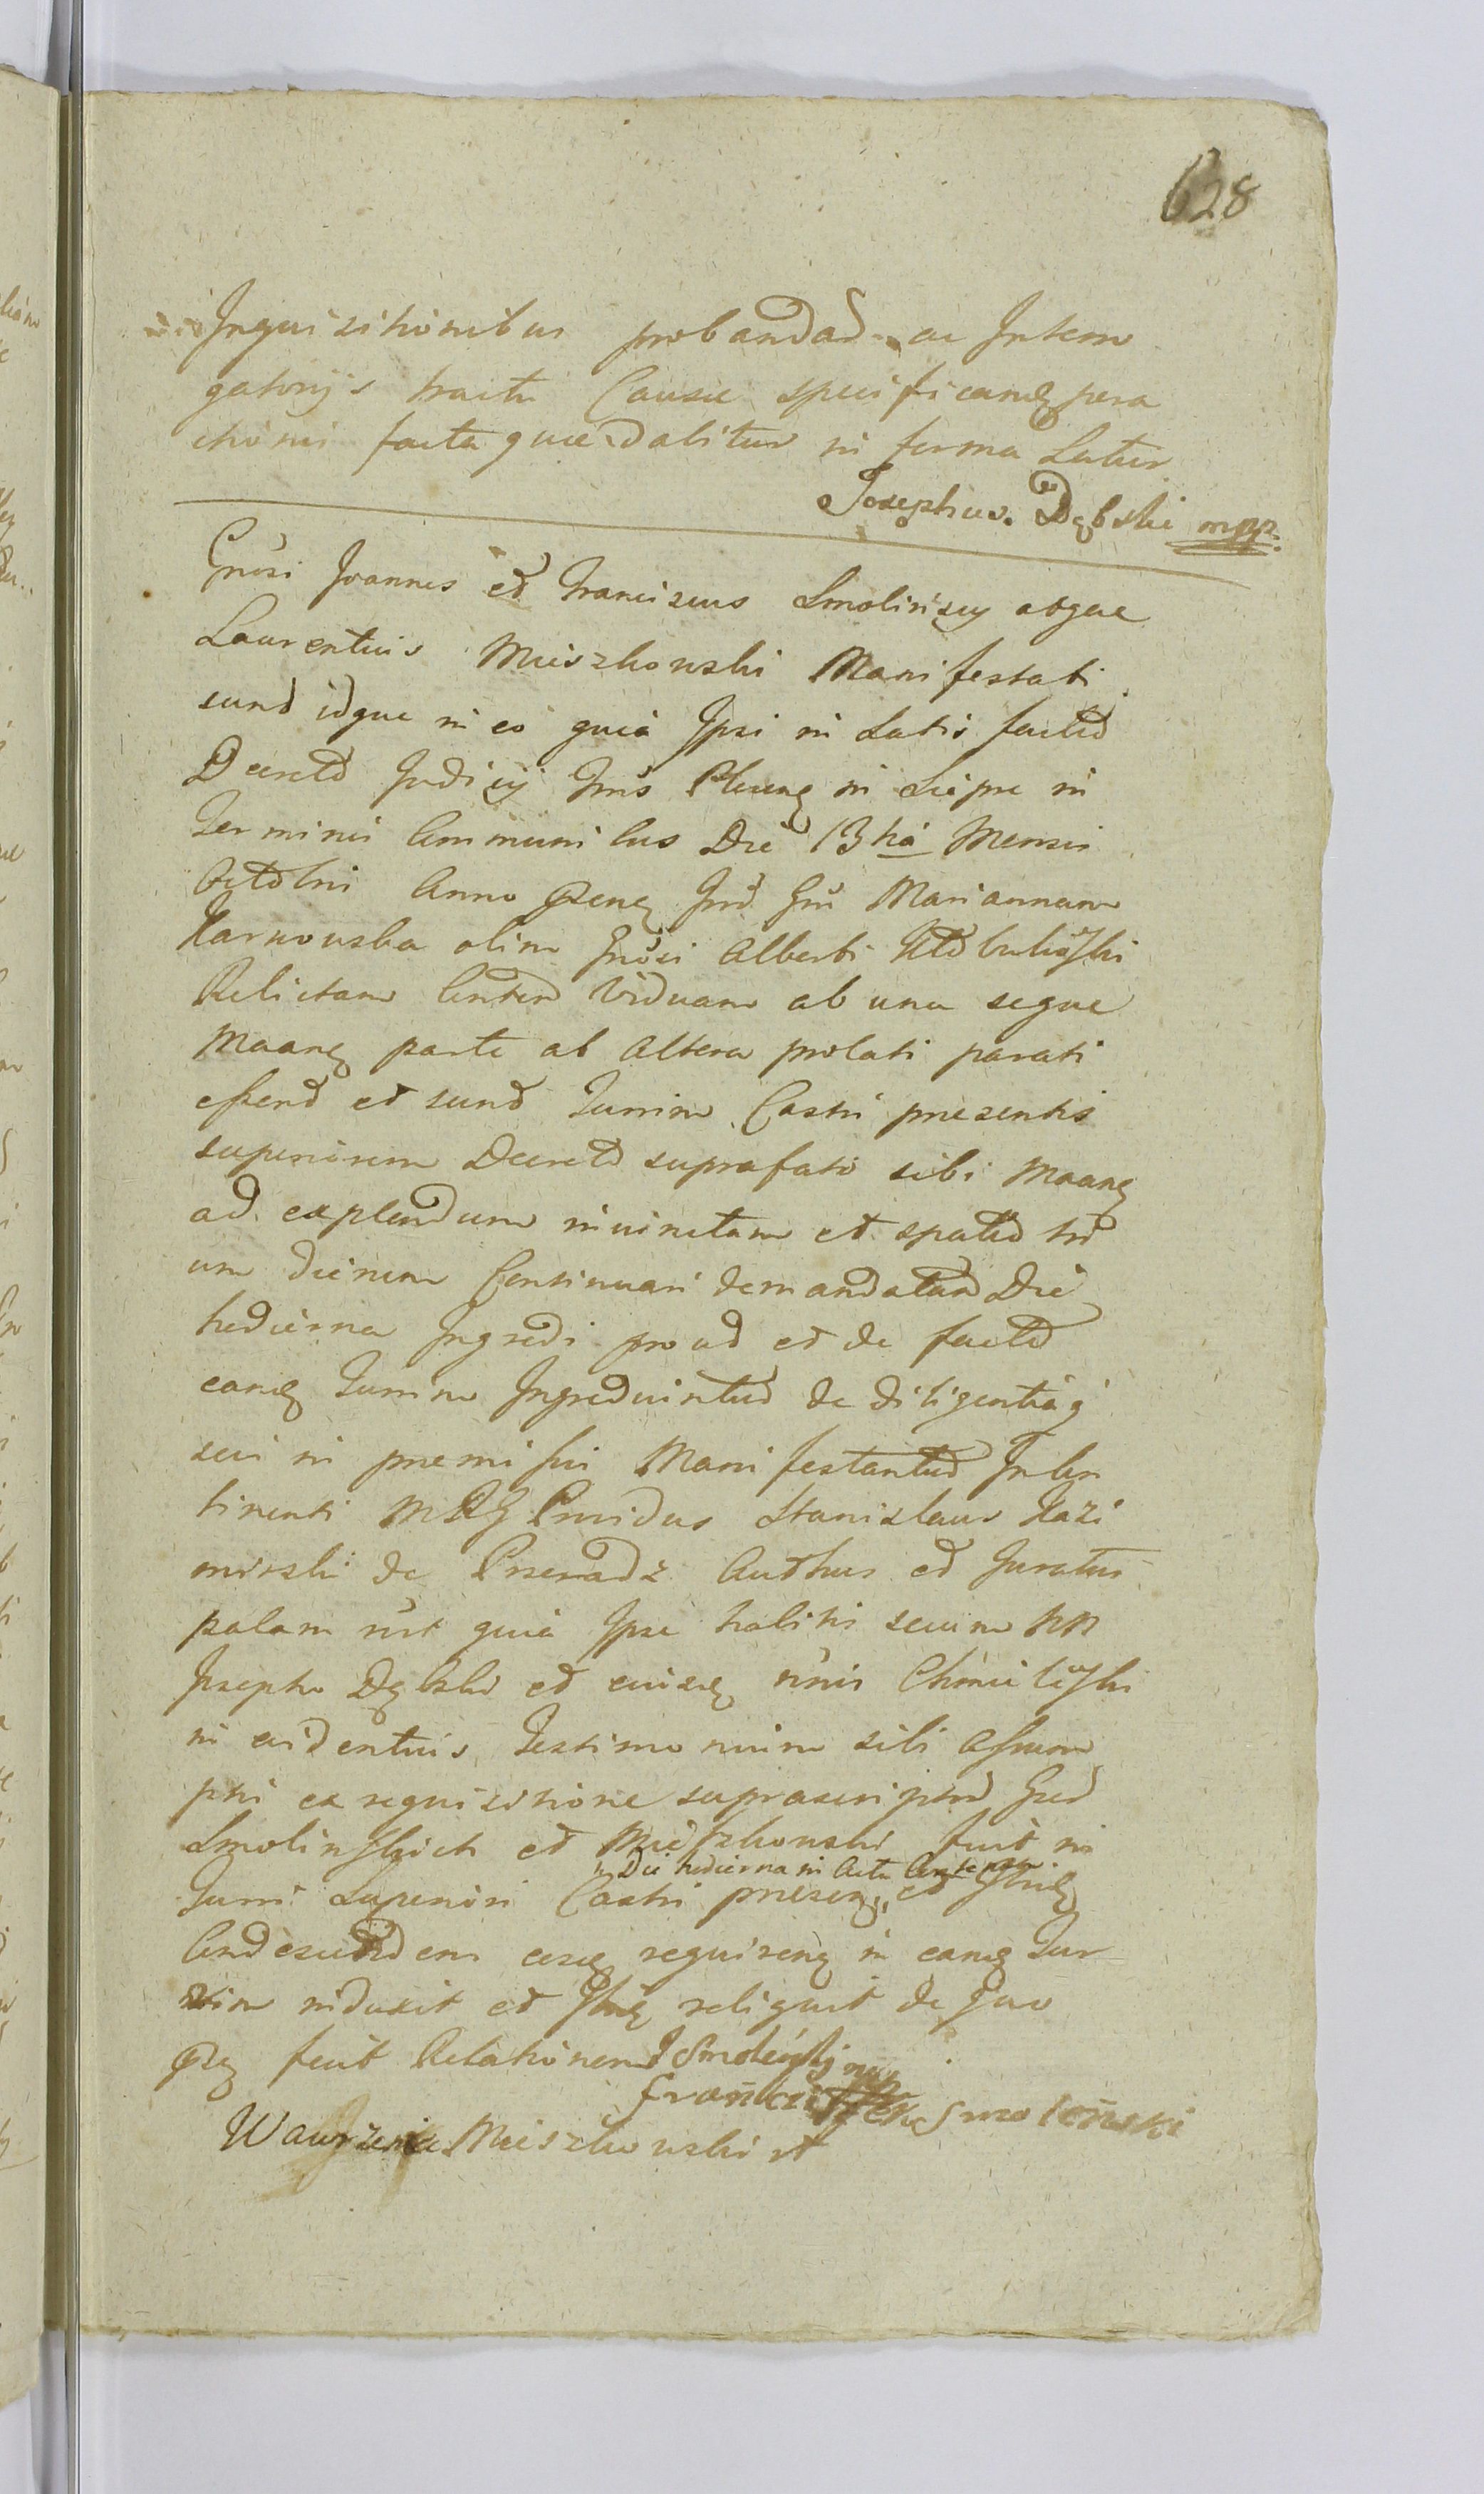 628
Inquisitionibus probandas ac Interro
gatorijs tractu Causae specificanq pera
ctionis facta quae dabitur in forma Latur
Josephus Dębski mpp.
Gnosi Joannes et Franciscus Smolinscy atque
Laurentius Mieszkowski Manifestati
sunt idque in eo quia Ipsi in Satis factio
Decreto Judicij Tris Pleuenq in Lipie in
Terminis Communibus Die 13tia Mensis
Octobris Anno psenq Intr Gm Mariannam
Karnowska olim Gnosi Alberti
Relictam Viduam ab una seque
Maanq parte ab altera prolati parati
essent et sunt Turrim Castri presentis
superiorem Decreto suprafato sibi Maanq
ad explendum iniunctam et spatio tri
um dierum Continuari demandatam Die
hodierna Ingredi prout et de facto
eanq Turrim Ingrediuntur de diligentiaq
sui in premissis Manifestantur In Con
tinenti MRG Providus Stanislaus Kazi
mirski de Authus et Juratus
palam rut quia Ipse habitis secum NN
Josepho Dębski et eiusq
in evidentius Testimonium sibi assum
ptis ex requisitione suprascriptor Gred
Smolinskich et Mieszkowski fuit in
„Die hodierna in Actu Condescen.
Turri Superiori Castri presenq „ et Ibidq
Condescendem eosq requirenq in eanq Tur
rim induxit et Ibiq reliquit de quo
psq fecit Relationem J Smoleński mpp
Franciszek Smoleński
Wawrzeniec Mieszkowski